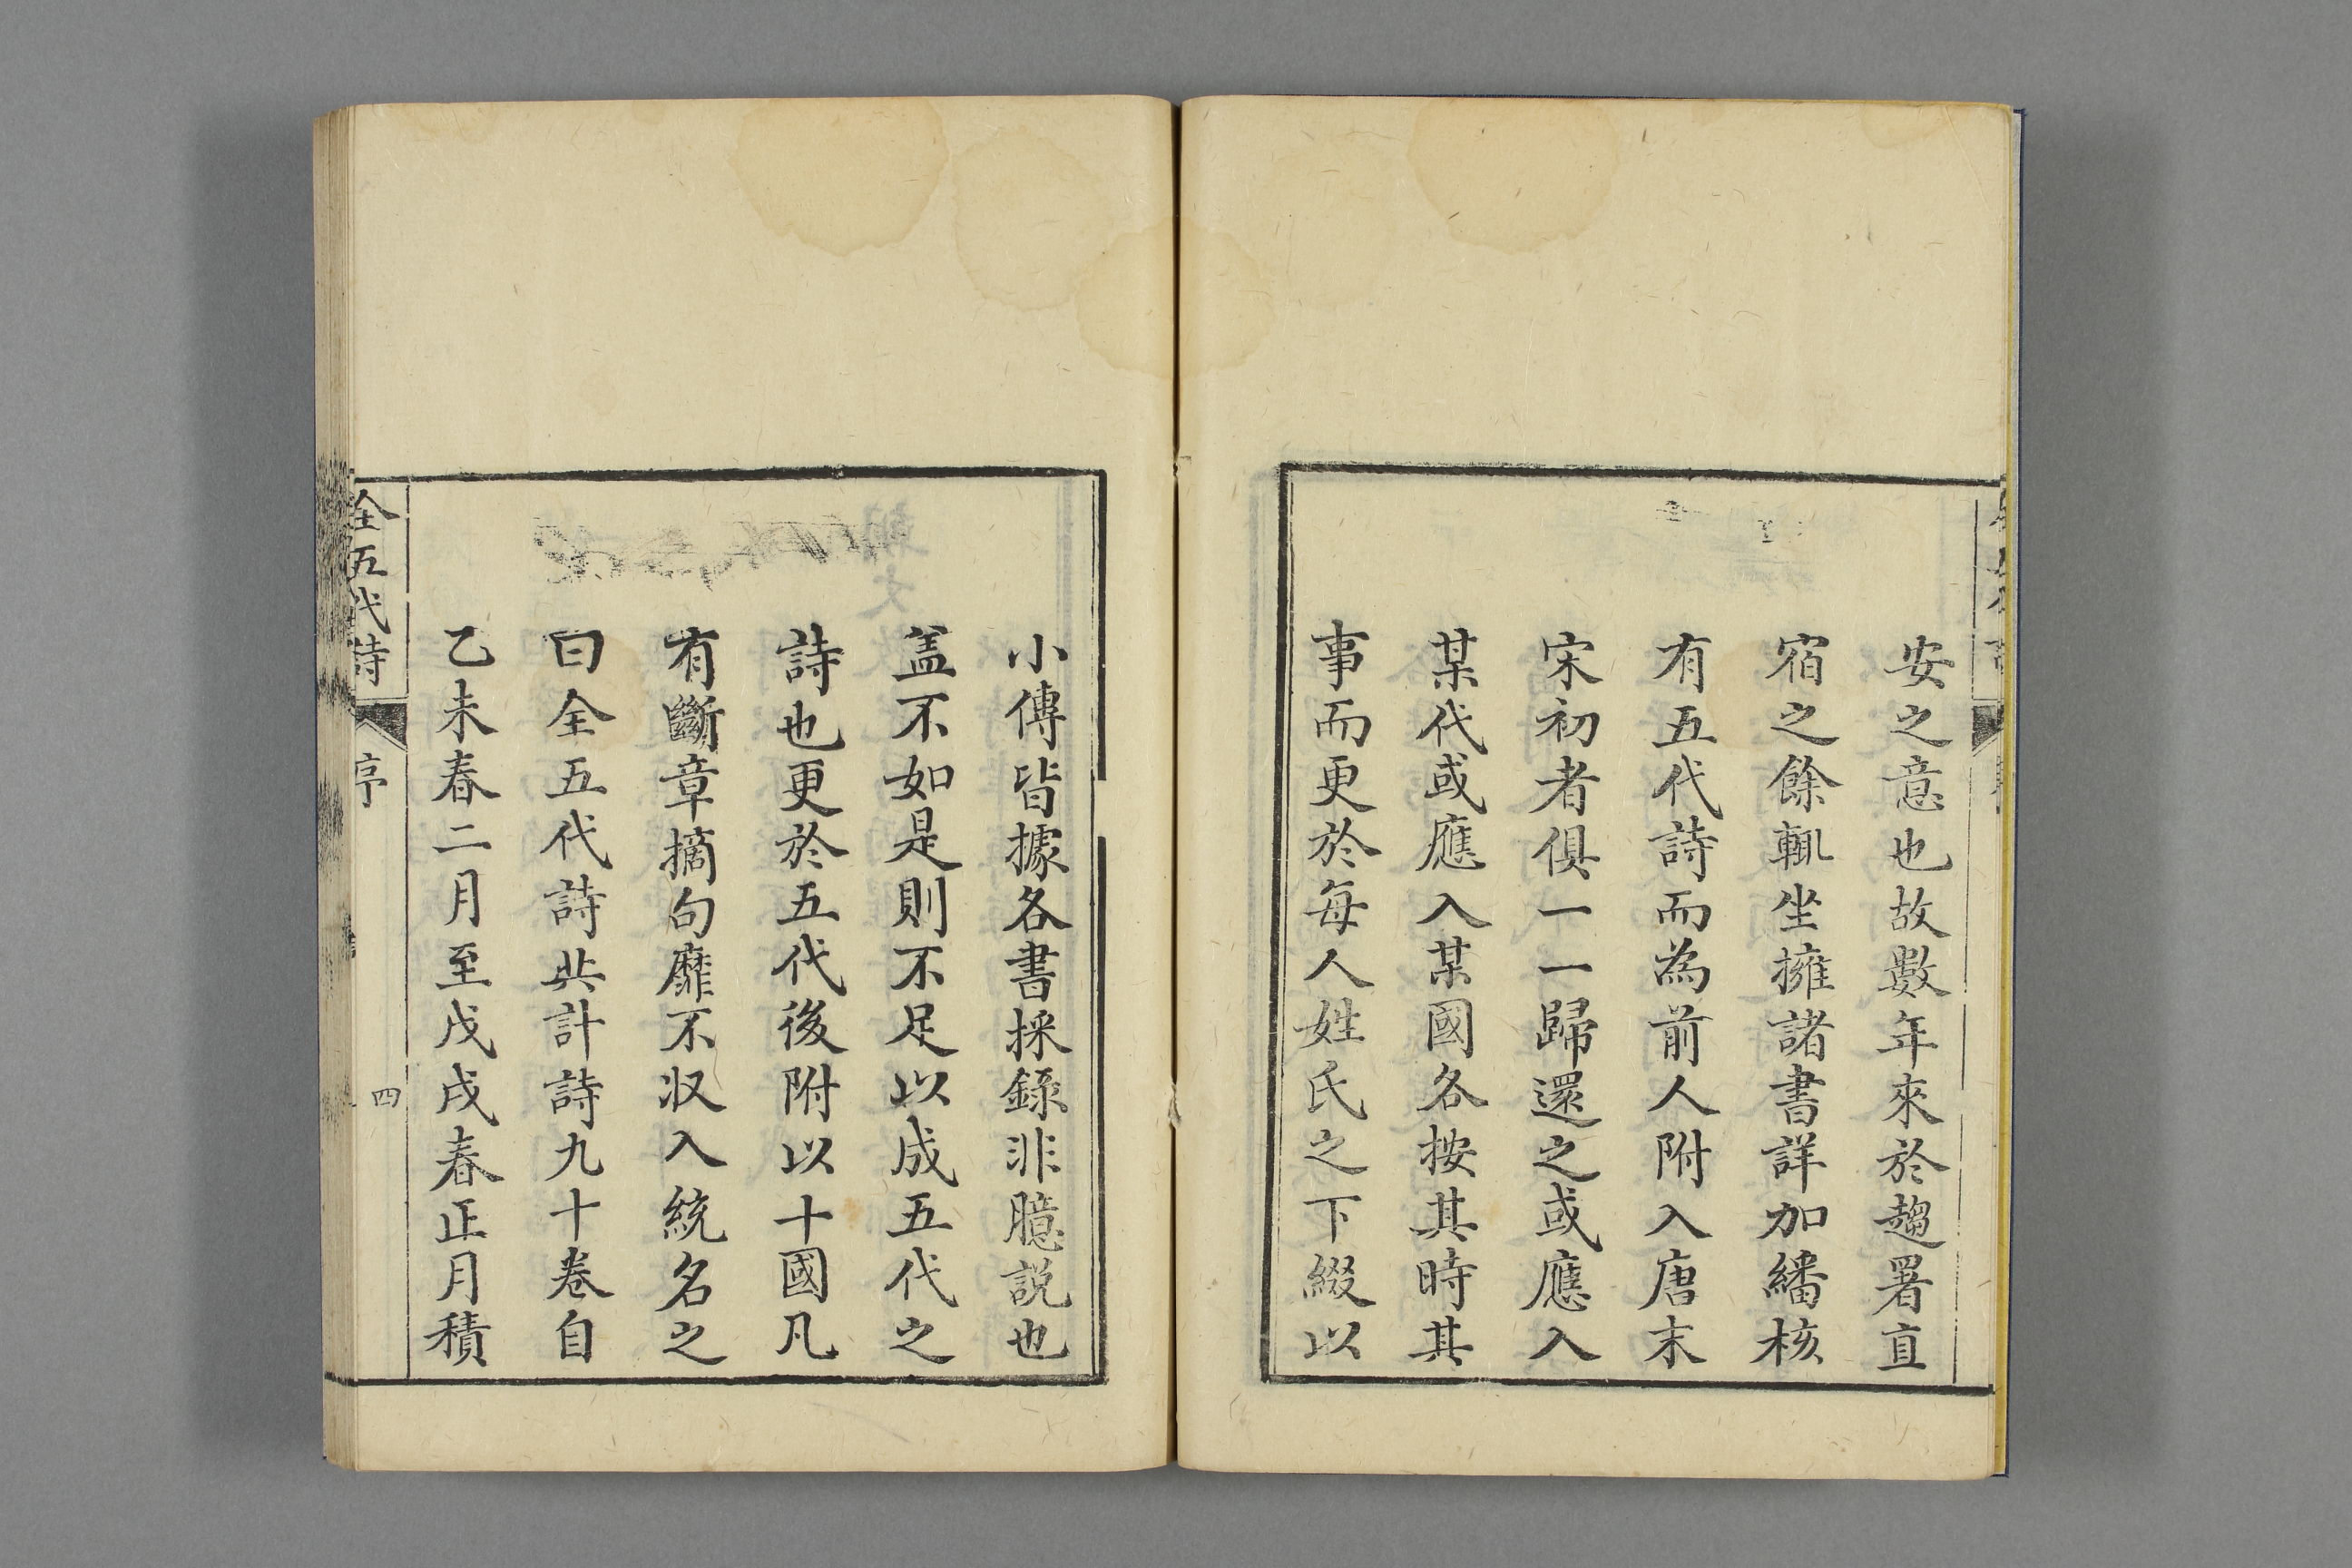 安之意也故數年來於趨署直
宿之餘輒坐擁諸書詳加繙核
有五代詩而為前人附入唐末
宋初者俱一一歸還之或應入
某代或應入某國各按其時其
事而更於每人姓氏之下綴以
小傳皆據各書採錄非臆説也
葢不如是則不足以成五代之
詩也更於五代後附以十國凡
有斷章摘句靡不収入統名之
曰全五代詩共計詩九十卷自
乙未春二月至戊戌春正月積
全五代詩
序
四